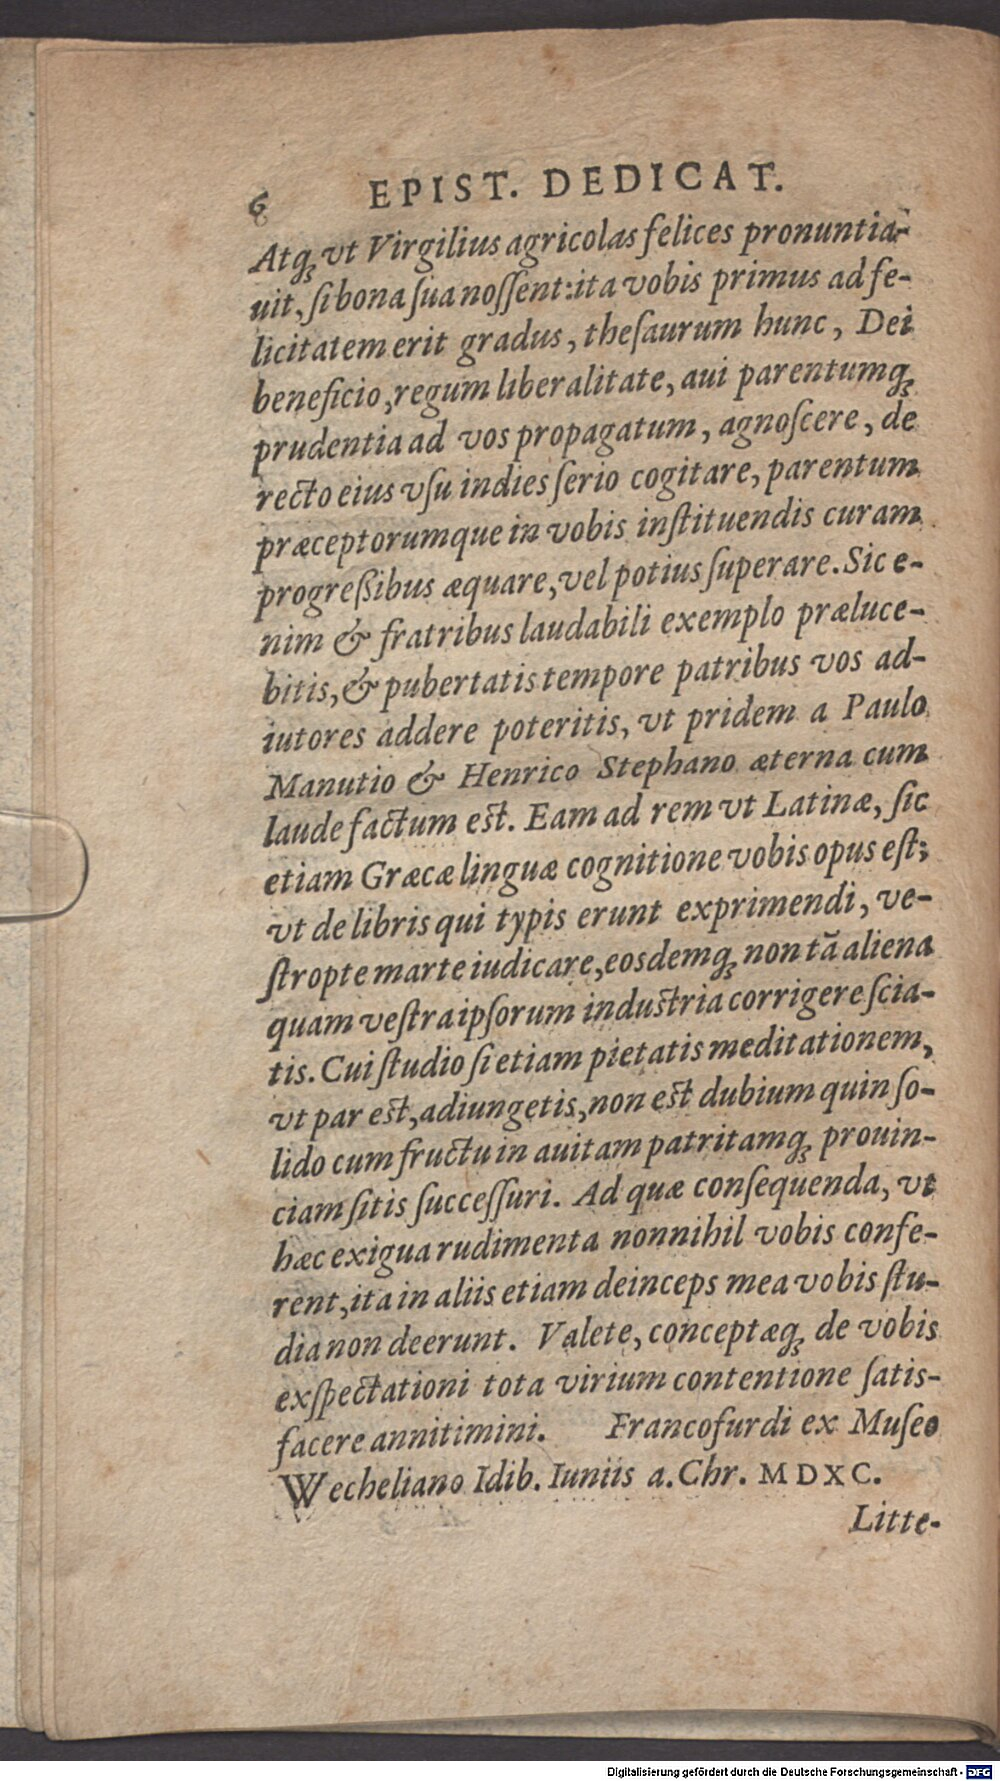 6 EPIST. DEDICAT.
Atq; vt Virgilius agricolas felices pronuntia-
uit, ſi bona ſua noſſent: ita vobis primus ad fe-
licitatem erit gradus, theſaurum hunc, Dei
beneficio, regum liberalitate, aui parentumq;
prudentia ad vos propagatum, agnoſcere, de
recto eius vſu indies ſerio cogitare, parentum
præceptorumque in vobis inſtituendis curam
progreßibus æquare, vel potius ſuperare. Sic e-
nim & fratribus laudabili exemplo præluce-
bitis, & pubertatis tempore patribus vos ad-
iutores addere poteritis, vt pridem a Paulo
Manutio & Henrico Stephano æterna cum
laude factum est. Eam ad rem vt Latinæ, ſic
etiam Græcæ linguæ cognitione vobis opus eſt;
vt de libris qui typis erunt exprimendi, ve-
ſtropte marte iudicare, eosdemq; non tā aliena
quam veſtra ipſorum industria corrigere ſcia-
tis. Cui ſtudio ſi etiam pietatis meditationem,
vt par est, adiungetis, non est dubium quin ſo-
lido cum fructu in auitam patritamq; prouin-
ciam ſitis ſucceſſuri. Ad quæ conſequenda, vt
hæc exigua rudimenta nonnihil vobis confe-
rent, ita in aliis etiam deinceps mea vobis ſtu-
dia non deerunt. Valete, conceptæq; de vobis
exſpectationi tota virium contentione ſatis-
facere annitimini. Francofurdi ex Muſeo
Wecheliano Idib. Iuniis a. Chr. MDXC.
Litte-
Digitalisierung gefördert durch die Deutsche Forschungsgemeinschaft - DFG